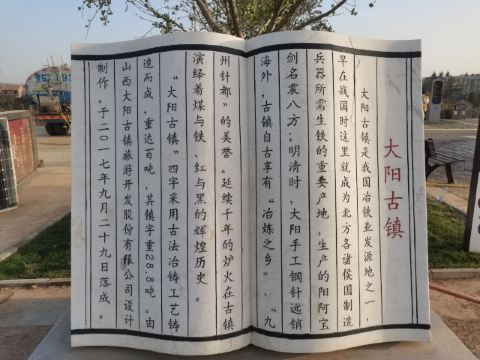 大阳古镇
大阳古镇是我国冶铁业发源地之一，
早在战国时这里就成为北方各诸侯国制造
兵器所需生铁的重要产地，生产的阳阿宝
剑名震八方；明清时，大阳手工钢针远销
海外，古镇自古享有“冶炼之乡”、“九
州针都”的美誉。延续千年的炉火在古镇
演绎着煤与铁、红与黑的辉煌历史。
“大阳古镇”四字采用古法冶铸工艺铸
造而成，重达百吨，其镇字重28.8吨。由
山西大阳古镇旅游开发股份有限公司设计
制作，于二〇一七年九月二十九日落成。